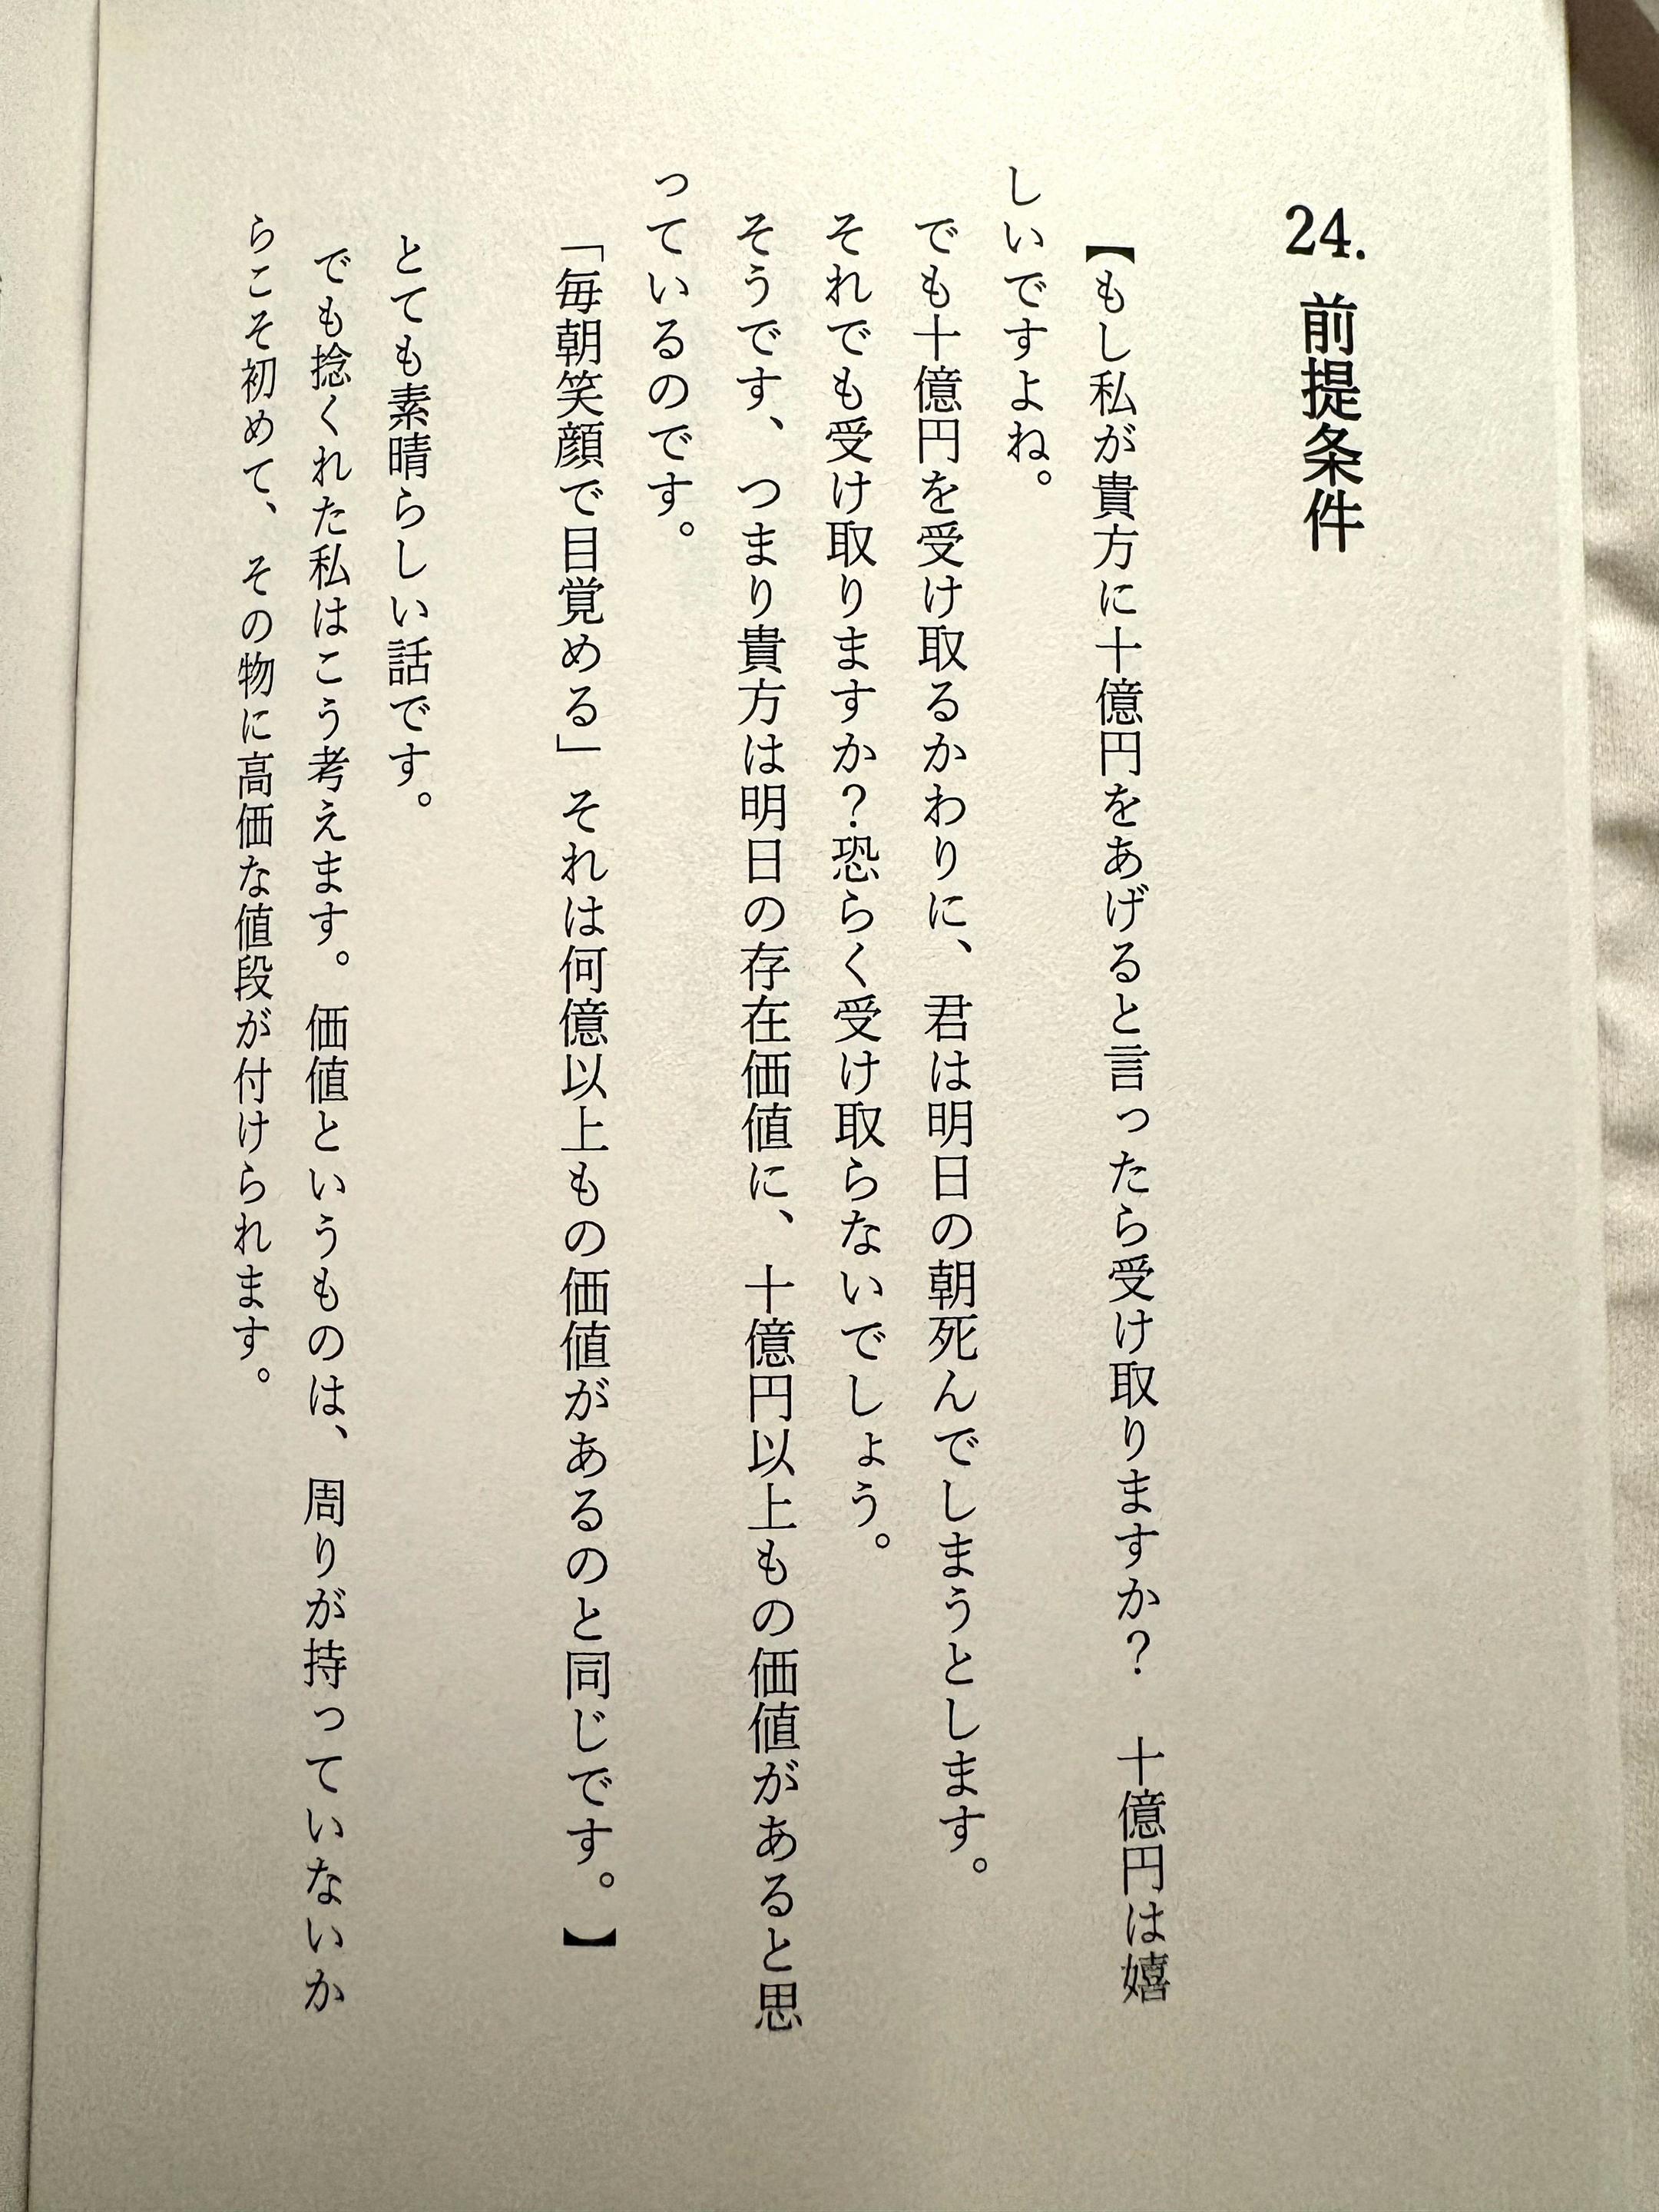 24. 前提条件
【もし私が貴方に十億円をあげると言ったら受け取りますか？　十億円は嬉
しいですよね。
でも十億円を受け取るかわりに、君は明日の朝死んでしまうとします。
それでも受け取りますか？恐らく受け取らないでしょう。
そうです、つまり貴方は明日の存在価値に、十億円以上もの価値があると思
っているのです。
「毎朝笑顔で目覚める」それは何億以上もの価値があるのと同じです。】
とても素晴らしい話です。
でも捻くれた私はこう考えます。価値というものは、周りが持っていないか
らこそ初めて、その物に高価な値段が付けられます。